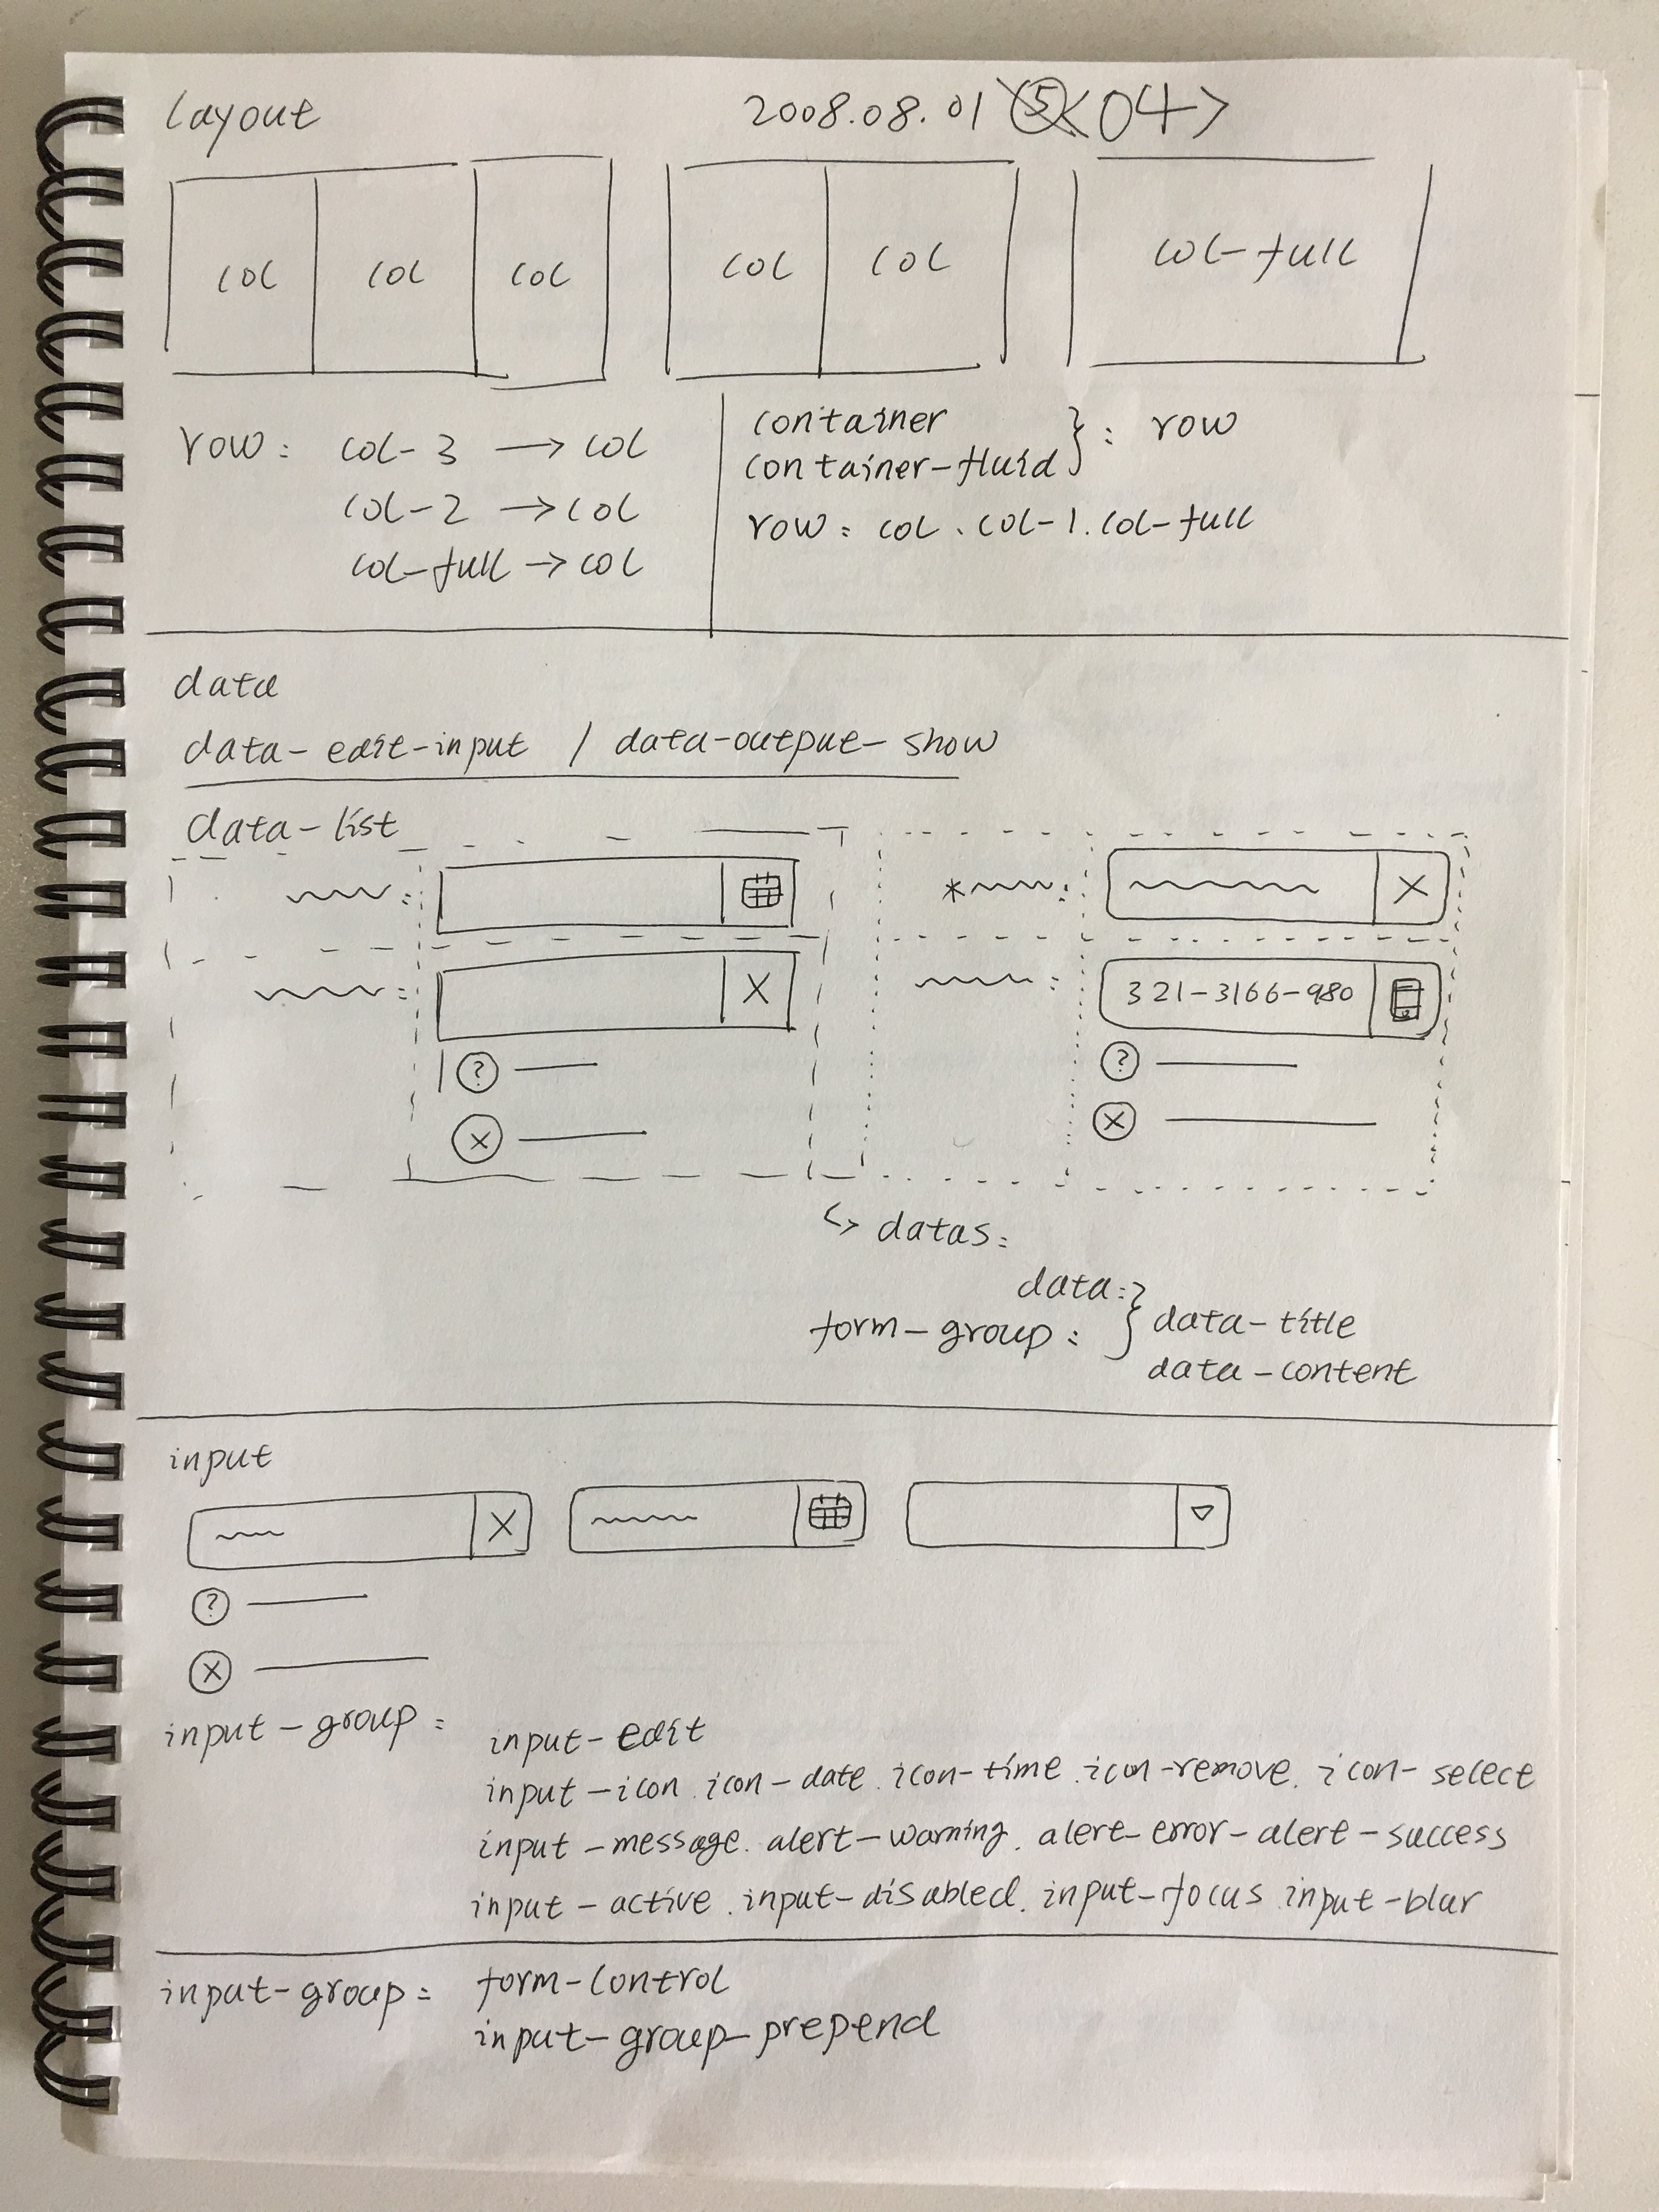 layout 2008.08.01 <04>
col col col col col col-full
row: col-3 → col
col-2 → col
col-full → col
container
container-fluid } : row
row: col、col-1.col-full
data
data-edit-input / data-output-show
data-list
: * :
X
: X : 321-3166-980
? ?
x x
↳ datas:
data: }
form-group: } data-title
data-content
input
X
?
x
input-group: input-edit
input-icon.icon-date.icon-time.icon-remove.icon-select
input-message.alert-warning.alert-error-alert-success
input-active.input-disabled.input-focus input-blur
input-group: form-control
input-group-prepend